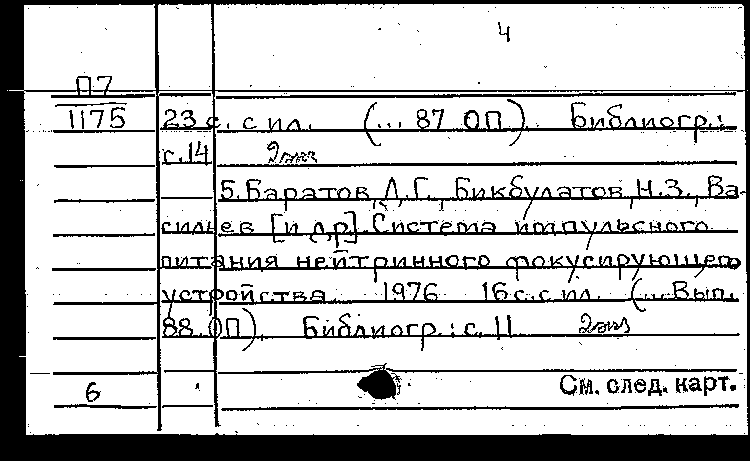 4
П7
1175 23 с. с ил. (... 87 ОП). Библиогр.:
с.14 2экз
5. Баратов Д.Г., Бикбулатов Н.З., Ва-
сильев [и др]. Система импульсного
питания нейтринного фокусирующего
устройства 1976 16 с. с ил. (... Вып.
88 ОП). Библиогр.: с. 11 2экз
6 См. след. карт.